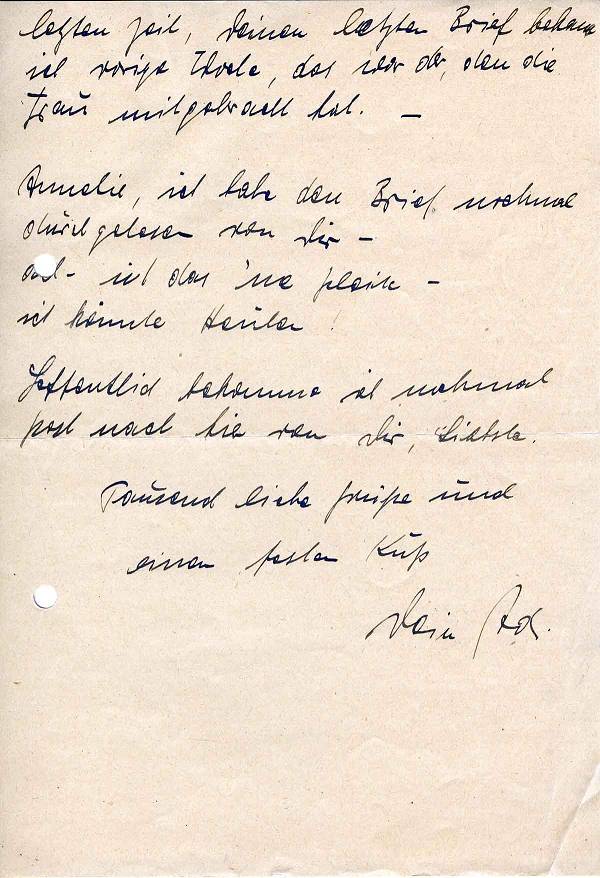 letzten Zeit, Deinen letzten Brief bekam
ich vorige Woche, das war der, den die
Frau mitgebracht hat. —
Annelie, ich habe den Brief nochmal
durchgelesen von Dir —
ach - ist das 'ne
ich könnte Heulen!
Hoffentlich bekomme ich nochmal
Post nach hier von Dir, Liebste.
Tausend liebe Grüße und
einen festen Kuß
Dein Ad.